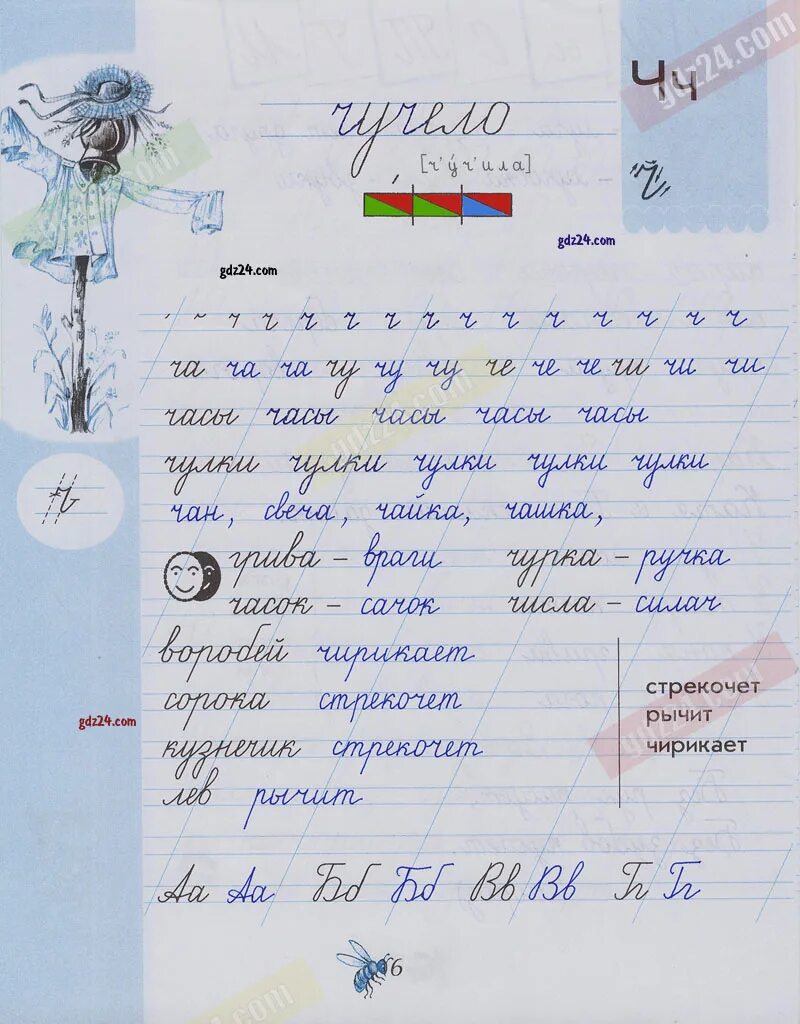 Чч
gdz24.com
чучело
[ч'у́ч'ила]
ч
gdz24.com
gdz24.com
ч ч ч ч ч ч ч ч ч ч ч
ча ча ча чу чу чу че че че чи чи чи
часы часы часы часы часы
чулки чулки чулки чулки чулки
ч
чан, свеча, чайка, чашка,
грива – враги чурка – ручка
часок – сачок числа – силач
воробей чирикает
сорока стрекочет
кузнечик стрекочет
лев рычит
стрекочет
рычит
чирикает
gdz24.com
Аа Аа Бб Бб Вв Вв Гг Гг
6